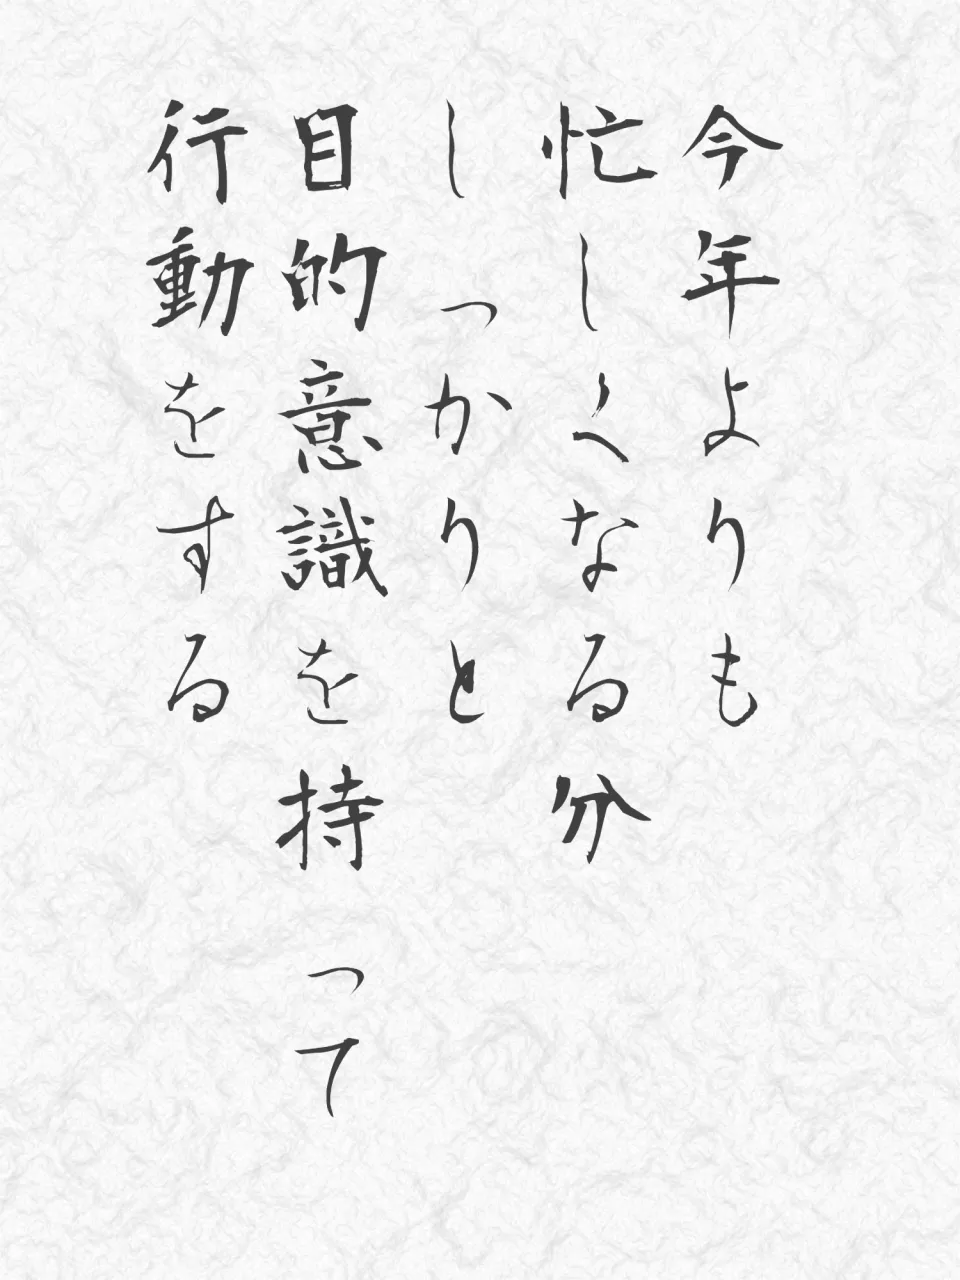 今年よりも
忙しくなる分
しっかりと
目的意識を持って
行動をする